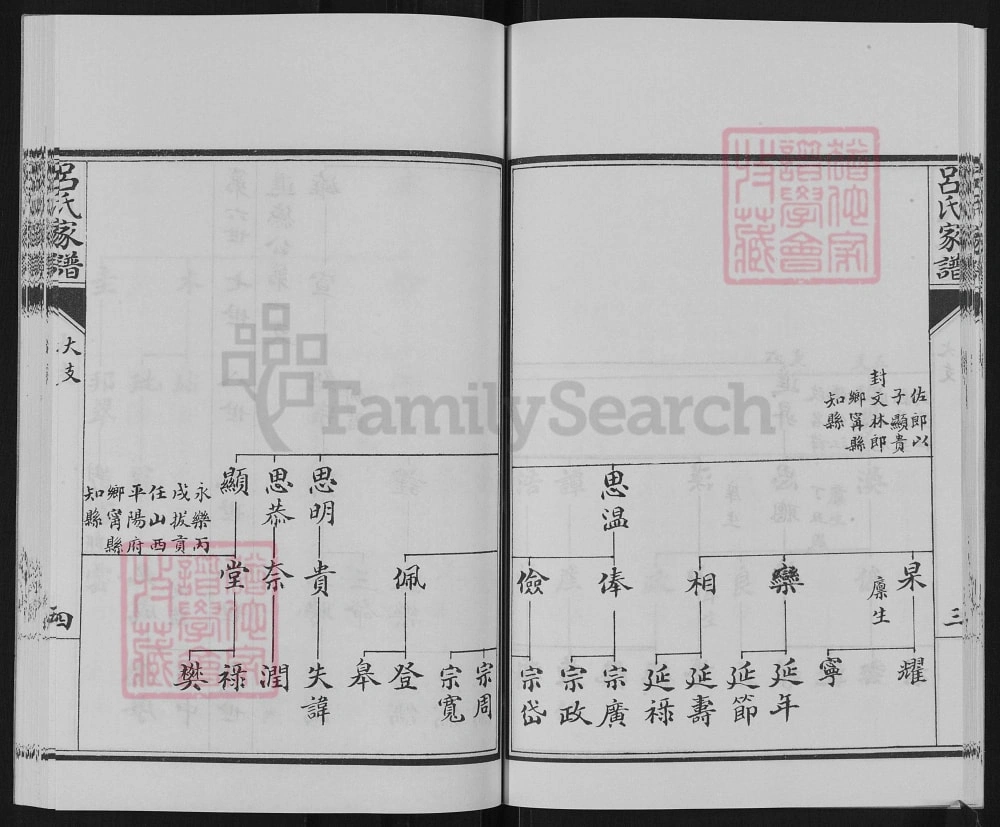 呂氏家譜
三
佐郎以
子顯貴
封文林郎
鄉甯縣
知縣
思温
杲
廩生
欒
相
俸
儉
耀
寧
延年
延節
延壽
延祿
宗廣
宗政
宗岱
思明
思恭
顯
永樂丙
戌拔貢
任山西
平陽府
鄉甯縣
知縣
佩
貴
奈
堂
宗周
宗寬
登
皋
失諱
潤
祿
樊
呂氏家譜
大支
四
FamilySearch